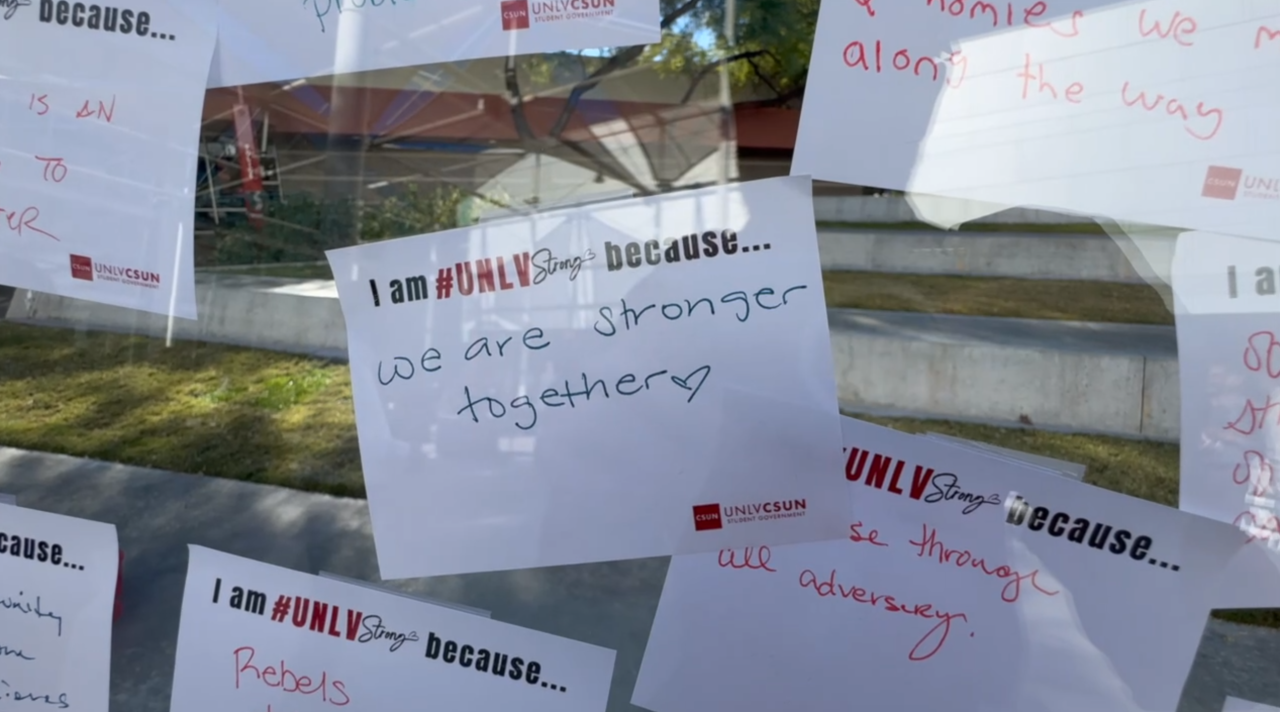 because...
IS AN
TO
CSUN UNLVCSUN
STUDENT GOVERNMENT
CSUN UNLVCSUN
STUDENT GOVERNMENT
homies we
along the way
CSUN
I am #UNLVStrong because...
we are stronger
together♡
CSUN UNLVCSUN
STUDENT GOVERNMENT
UNLVStrong because...
se through
all adversery.
I am #UNLVStrong because...
Rebels
cause...